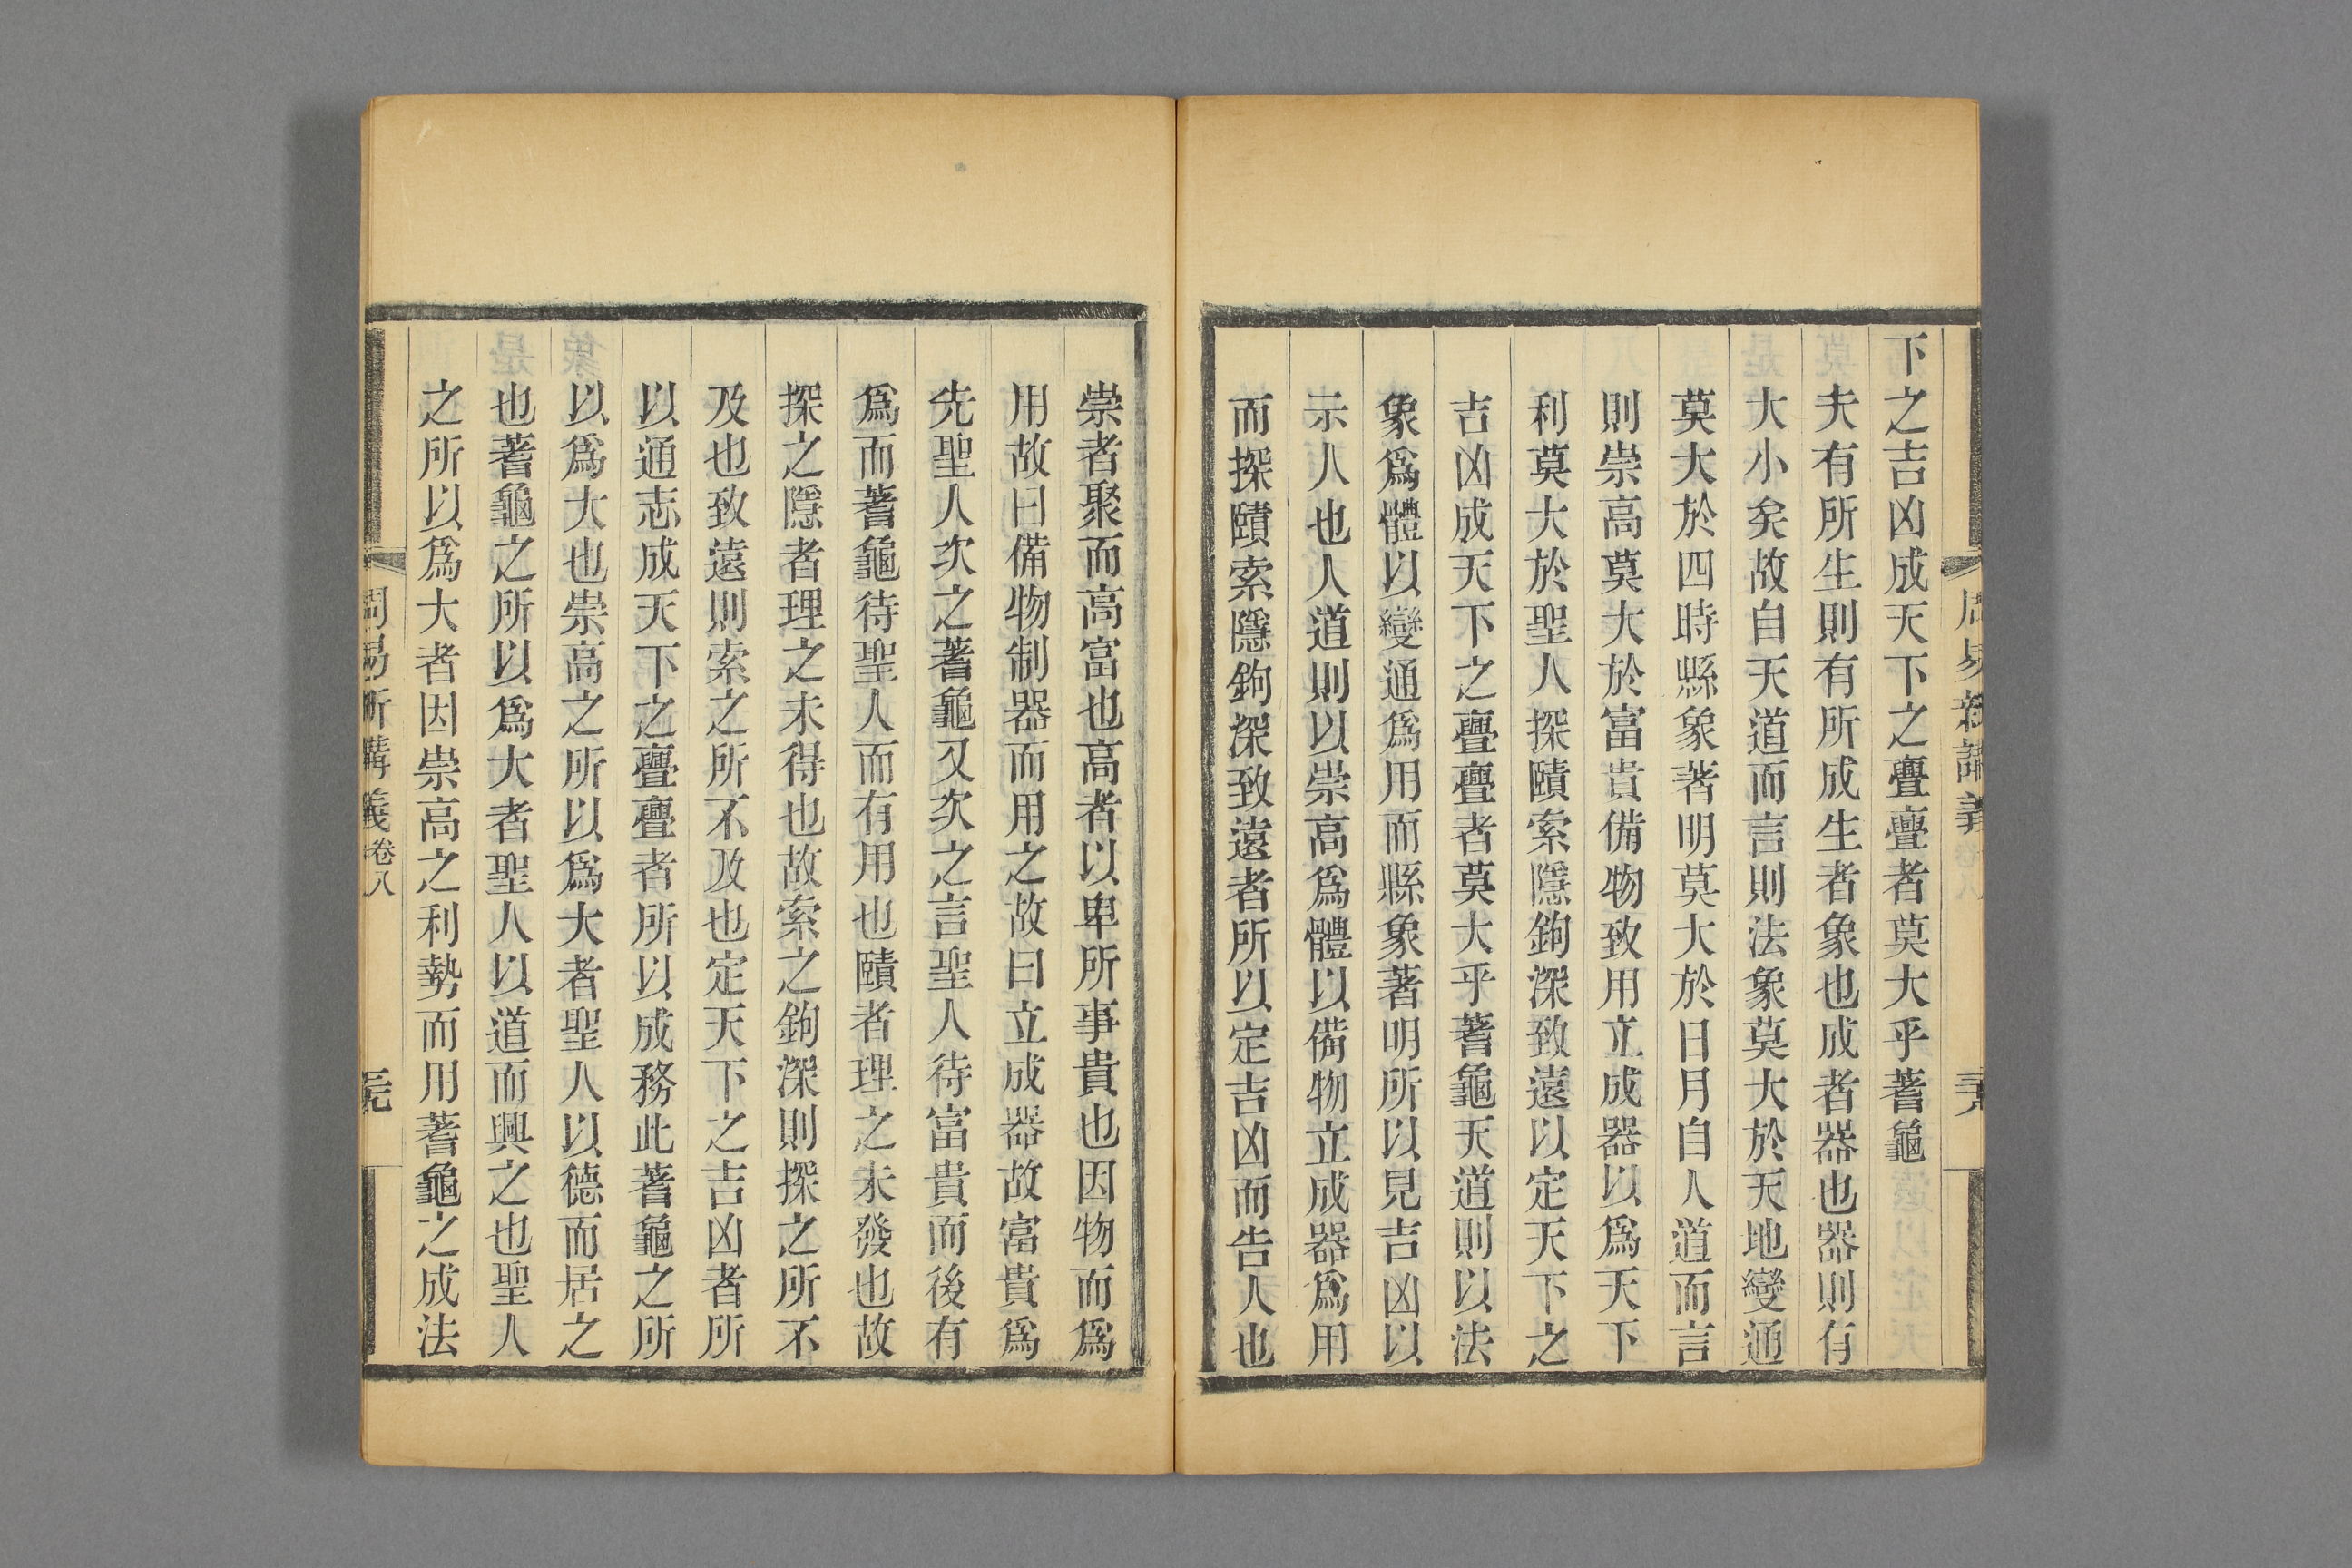 下之吉凶成天下之亹亹者莫大乎蓍龜
夫有所生則有所成生者象也成者器也器則有
大小矣故自天道而言則法象莫大於天地變通
莫大於四時縣象著明莫大於日月自人道而言
則崇高莫大於富貴備物致用立成器以爲天下
利莫大於聖人探賾索隱鉤深致遠以定天下之
吉凶成天下之亹亹者莫大乎蓍龜天道則以法
象爲體以變通爲用而縣象著明所以見吉凶以
示人也人道則以崇高爲體以備物立成器爲用
而探賾索隱鉤深致遠者所以定吉凶而告人也
崇者聚而高富也高者以卑所事貴也因物而爲
用故曰備物制器而用之故曰立成器故富貴爲
先聖人次之蓍龜又次之言聖人待富貴而後有
爲而蓍龜待聖人而有用也賾者理之未發也故
探之隱者理之未得也故索之鉤深則探之所不
及也致遠則索之所不及也定天下之吉凶者所
以通志成天下之亹亹者所以成務此蓍龜之所
以爲大也崇高之所以爲大者聖人以德而居之
也蓍龜之所以爲大者聖人以道而興之也聖人
之所以爲大者因崇高之利勢而用蓍龜之成法
周易新講義卷八